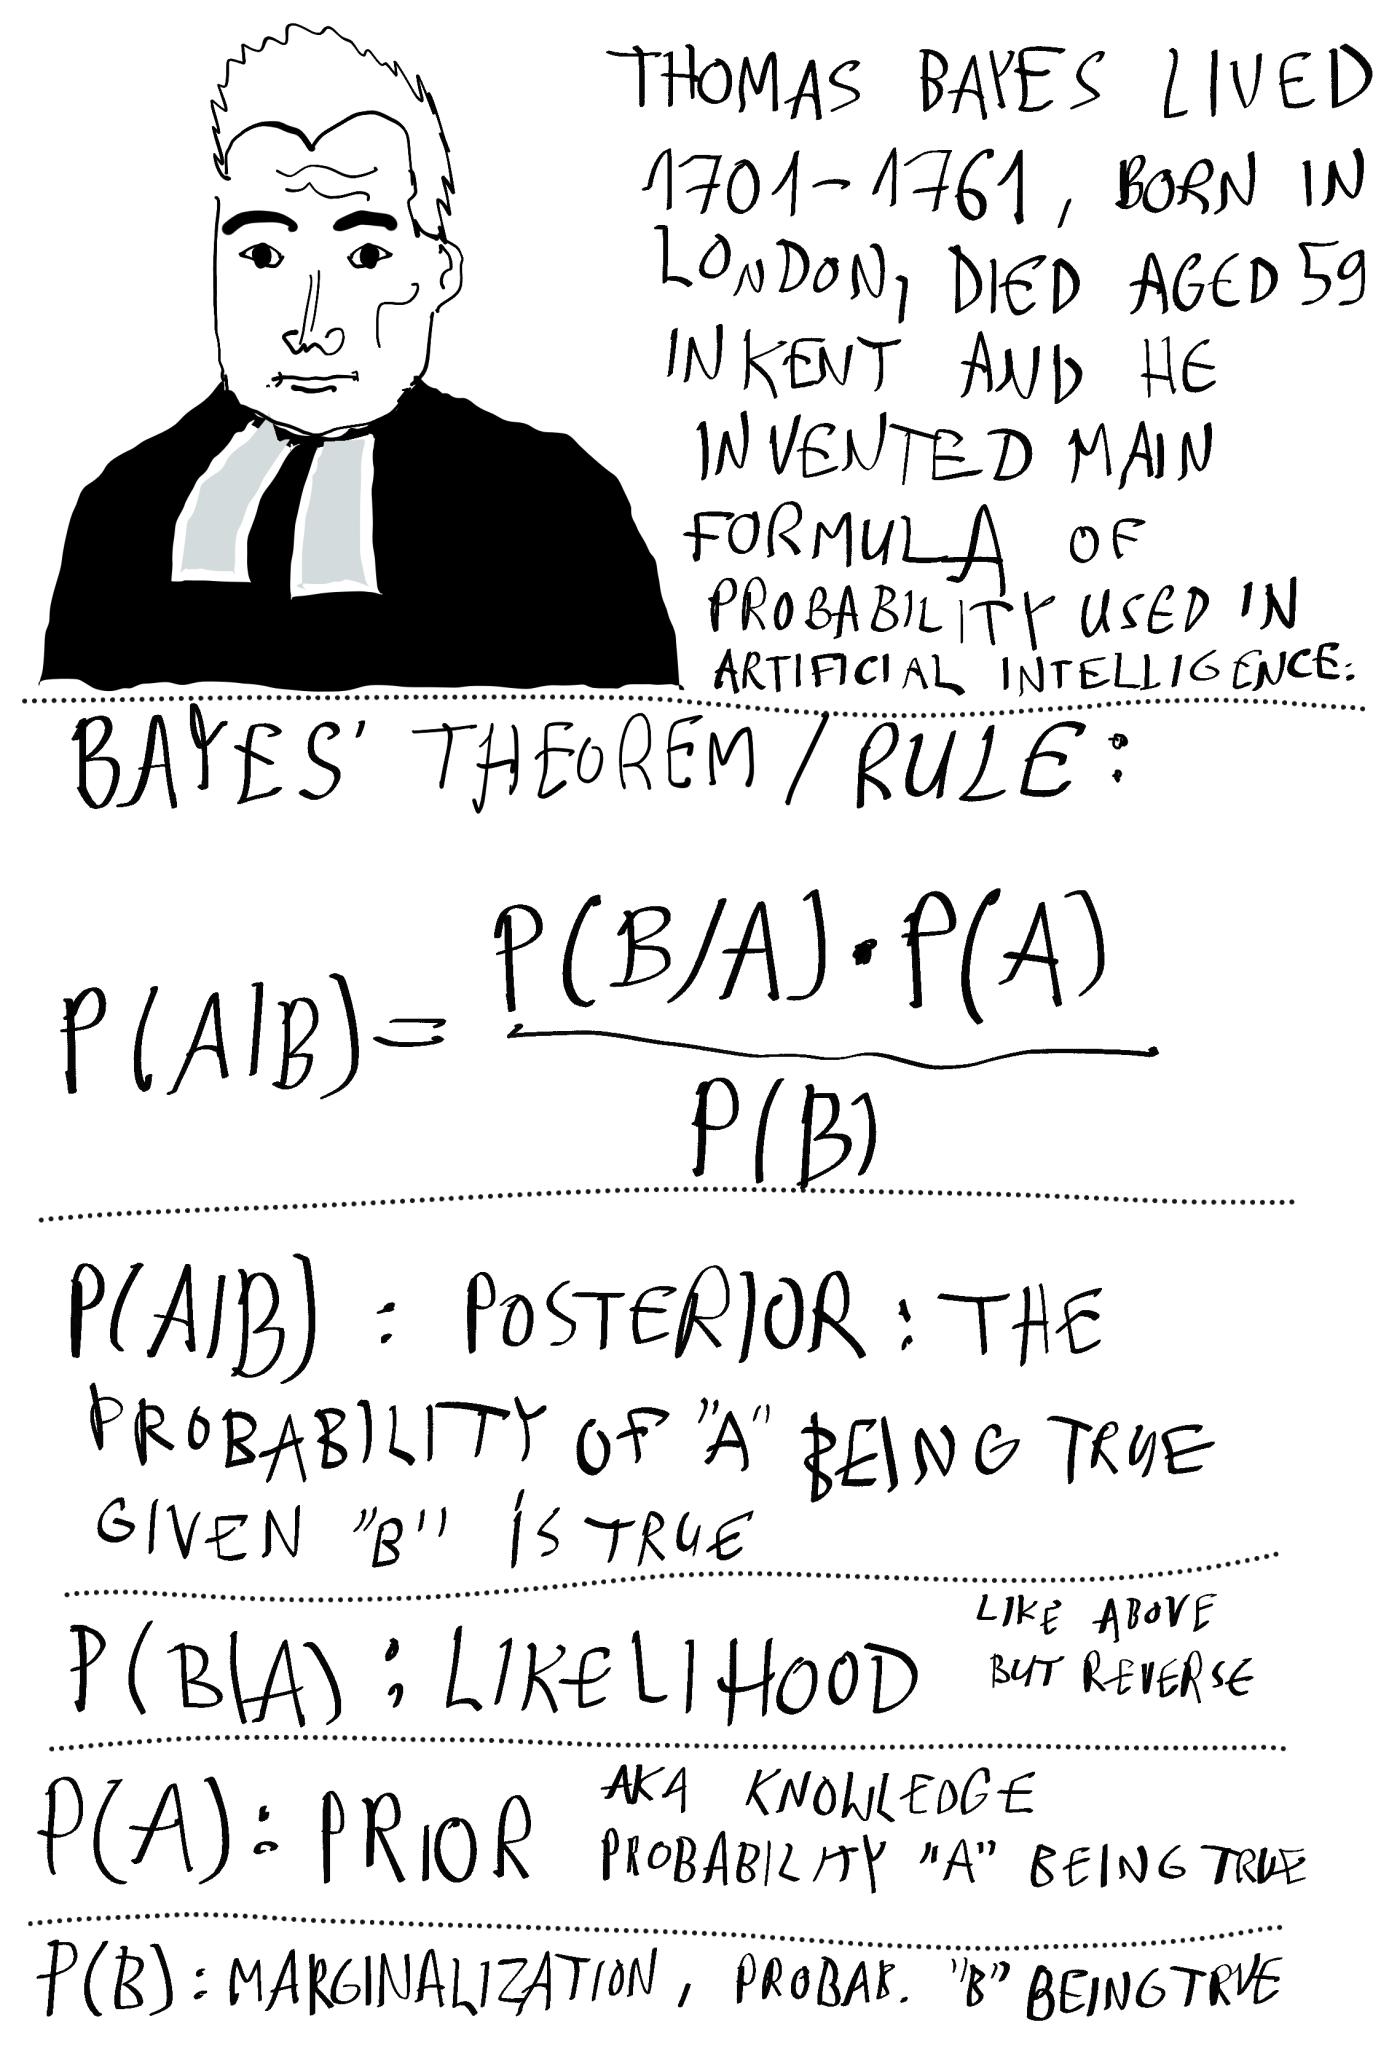 THOMAS BAYES LIVED
1701-1761, BORN IN
LONDON, DIED AGED 59
IN KENT AND HE
INVENTED MAIN
FORMULA OF
PROBABILITY USED IN
ARTIFICIAL INTELLIGENCE:
BAYES' THEOREM / RULE:
P(B/A)·P(A)
P(A|B)=
P(B)
P(A|B) : POSTERIOR : THE
PROBABILITY OF "A" BEING TRUE
GIVEN "B" IS TRUE
P(B|A) : LIKELIHOOD
LIKE ABOVE
BUT REVERSE
P(A): PRIOR
AKA KNOWLEDGE
PROBABILITY "A" BEING TRUE
P(B): MARGINALIZATION, PROBAB. "B" BEING TRUE